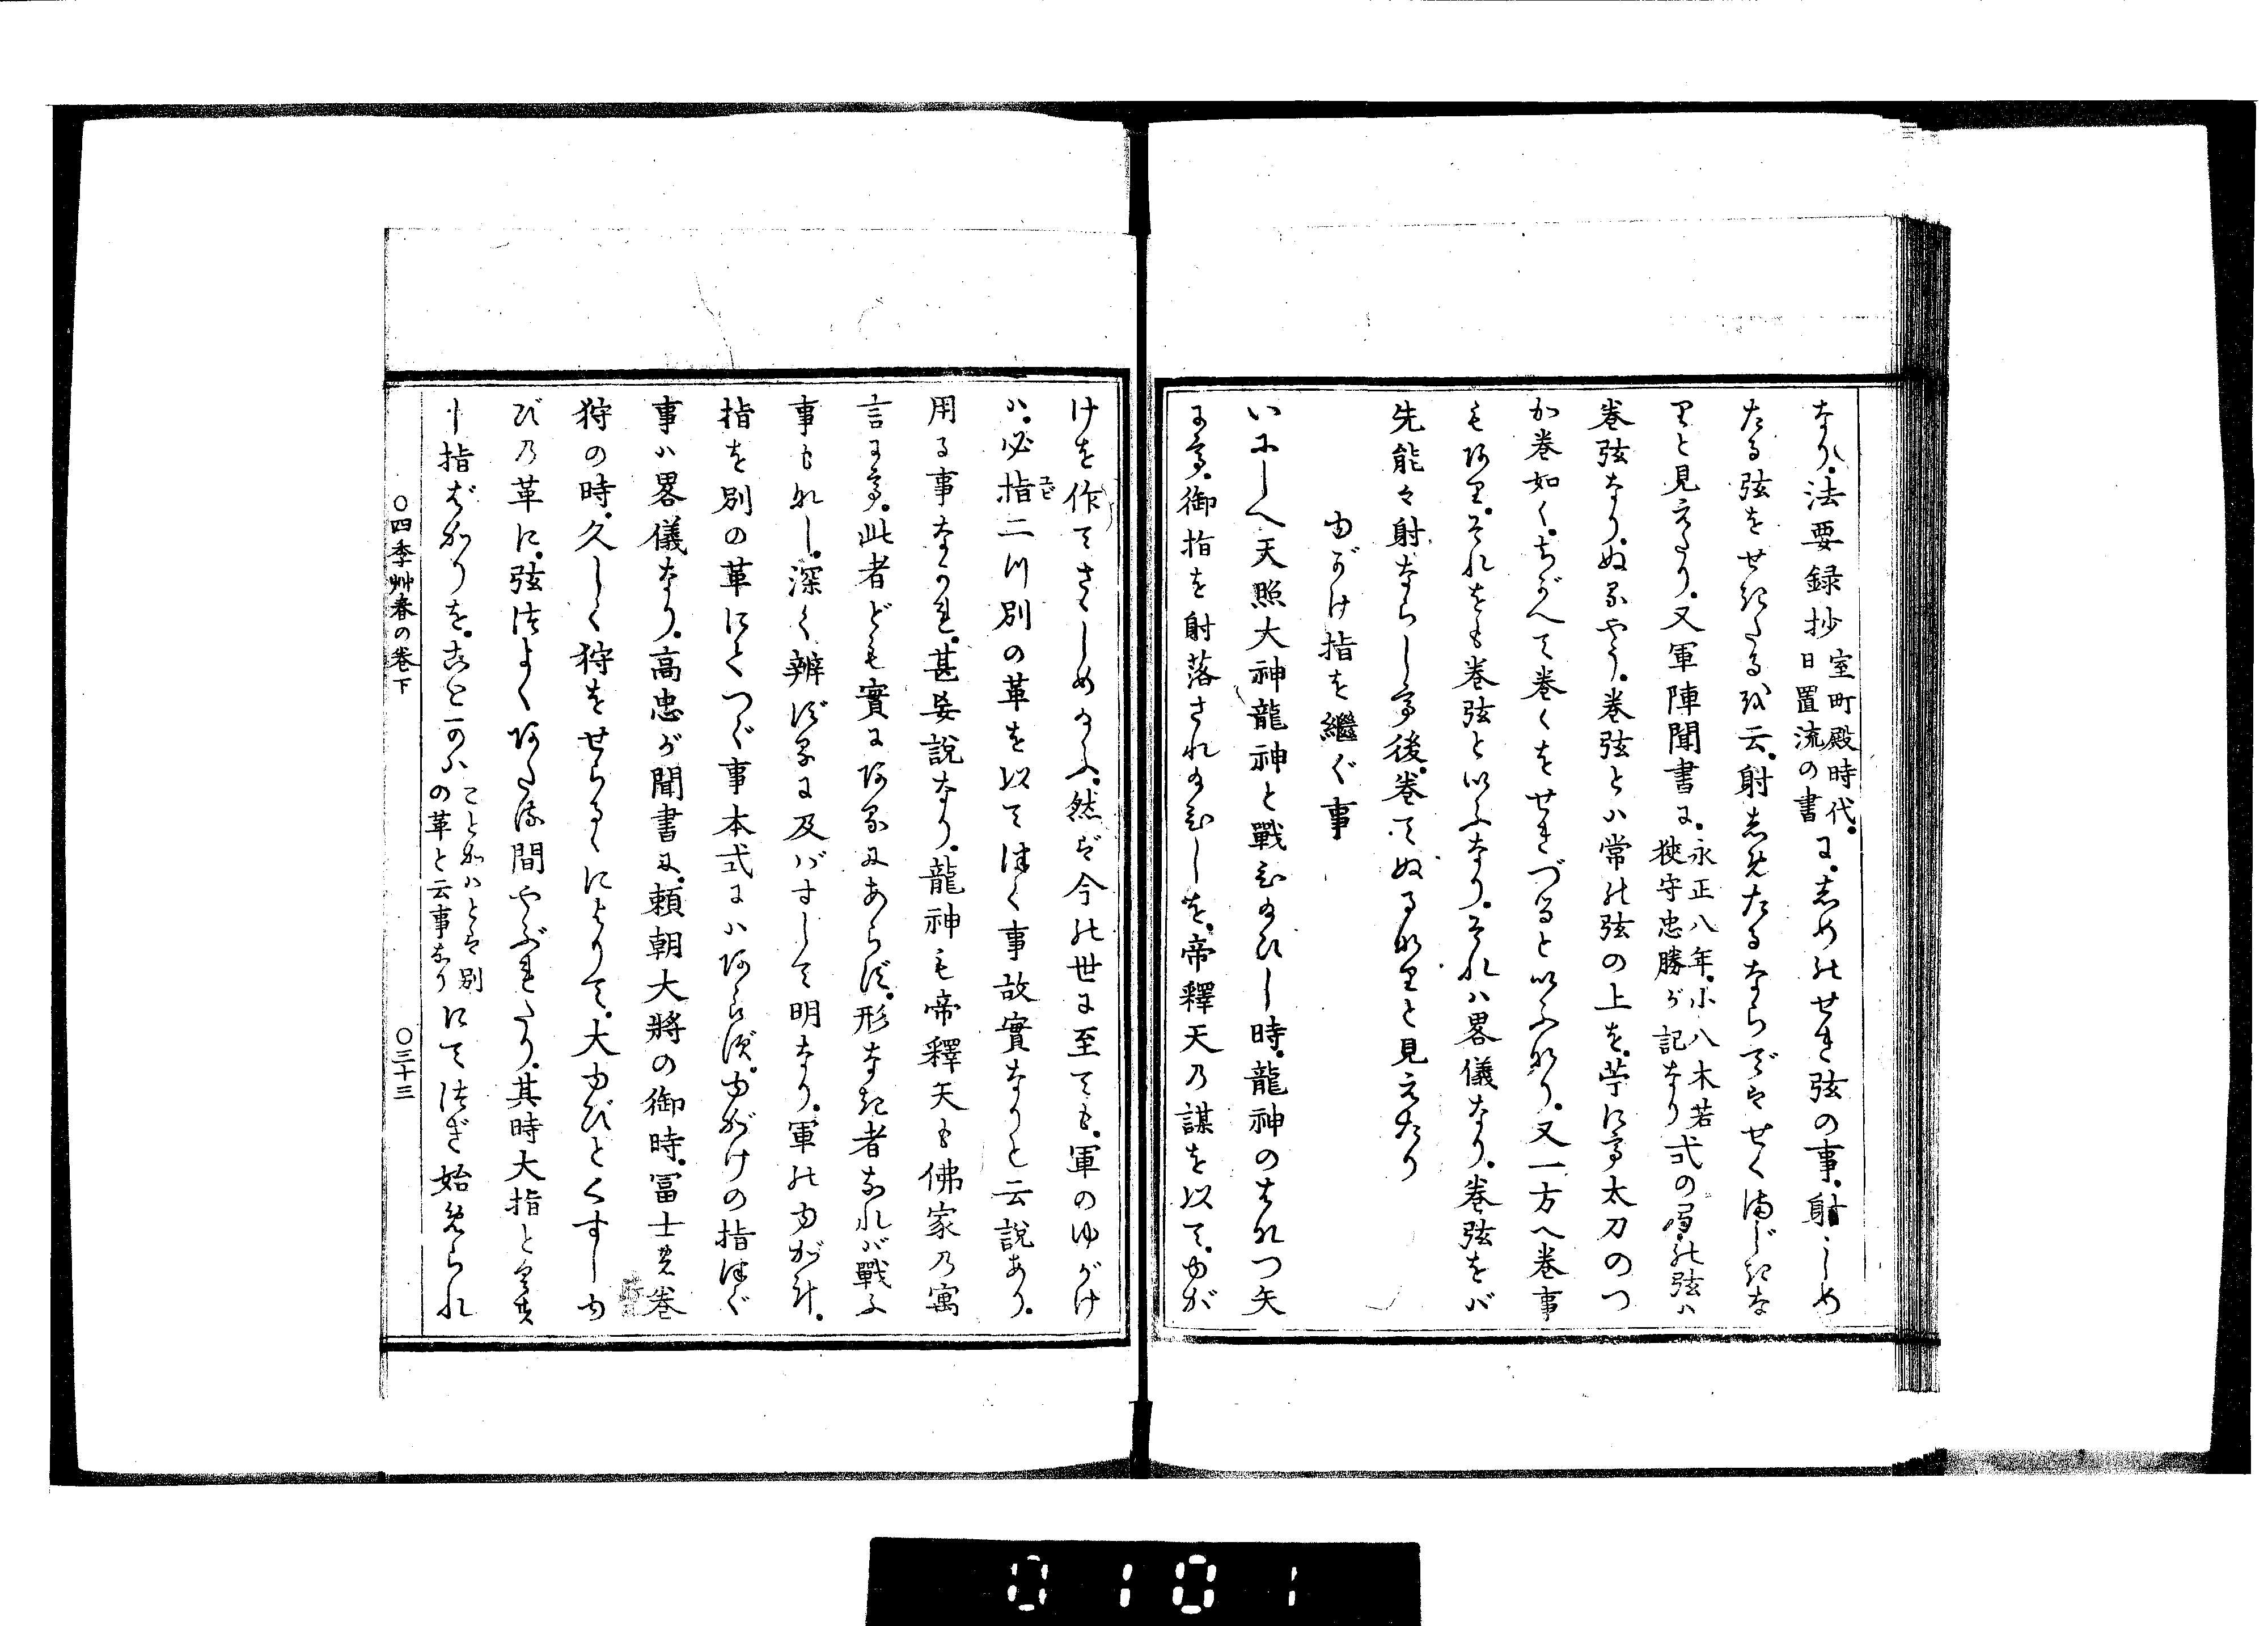 なり。法要録抄室町殿時代。日置流の書に。志めのせき弦の事。射しめ
たる弦をせきたるを云。射志めたるならでは。せくまじきな
りと見えたり。又軍陣聞書に。永正八年。小八木若狭守忠勝が記なり式の局の弦ハ
巻弦なり。ぬるやう。巻弦とハ常の弦の上を。苧にて太刀のつ
か巻如く。ちがへて巻くをせきづると以ふなり。又一方へ巻事
もあり。それをも巻弦と以ふなり。それハ畧儀なり。巻弦をバ
先能々射ならして後。巻てぬるなりと見えたり
ゆがけ指を繼ぐ事
いにしへ天照大神龍神と戰ひ給ひし時。龍神のはなつ矢
にて。御指を射落され給ひしを。帝釋天乃謀を以て。ゆが
けを作てさゝしめ給ふ。然ば今の世に至ても。軍のゆがけ
ハ。必指ユビ二つ別の革を以てつく事故實なりと云説あり。
用る事なかれ。甚妄説なり。龍神も帝釋天も佛家乃寓
言にて。此者ども實にあるにあらず。形なき者なれバ戰ふ
事もなし。深く辨ずるに及バずして明なり。軍のゆがけ。
指を別の革にてつぐ事本式にハあらず。ゆがけの指つぐ
事ハ畧儀なり。高忠が聞書に。頼朝大將の御時。冨士の巻
狩の時。久しく狩をせらるゝによりて。大ゆびとくすしゆ
び乃革に。弦つよくあたる間やぶれたり。其時大指とくす
し指ばかりを。ことかふことかハとは別の革と云事なりにてつぎ始められ
〇四季艸春の巻下
〇三十三
0101